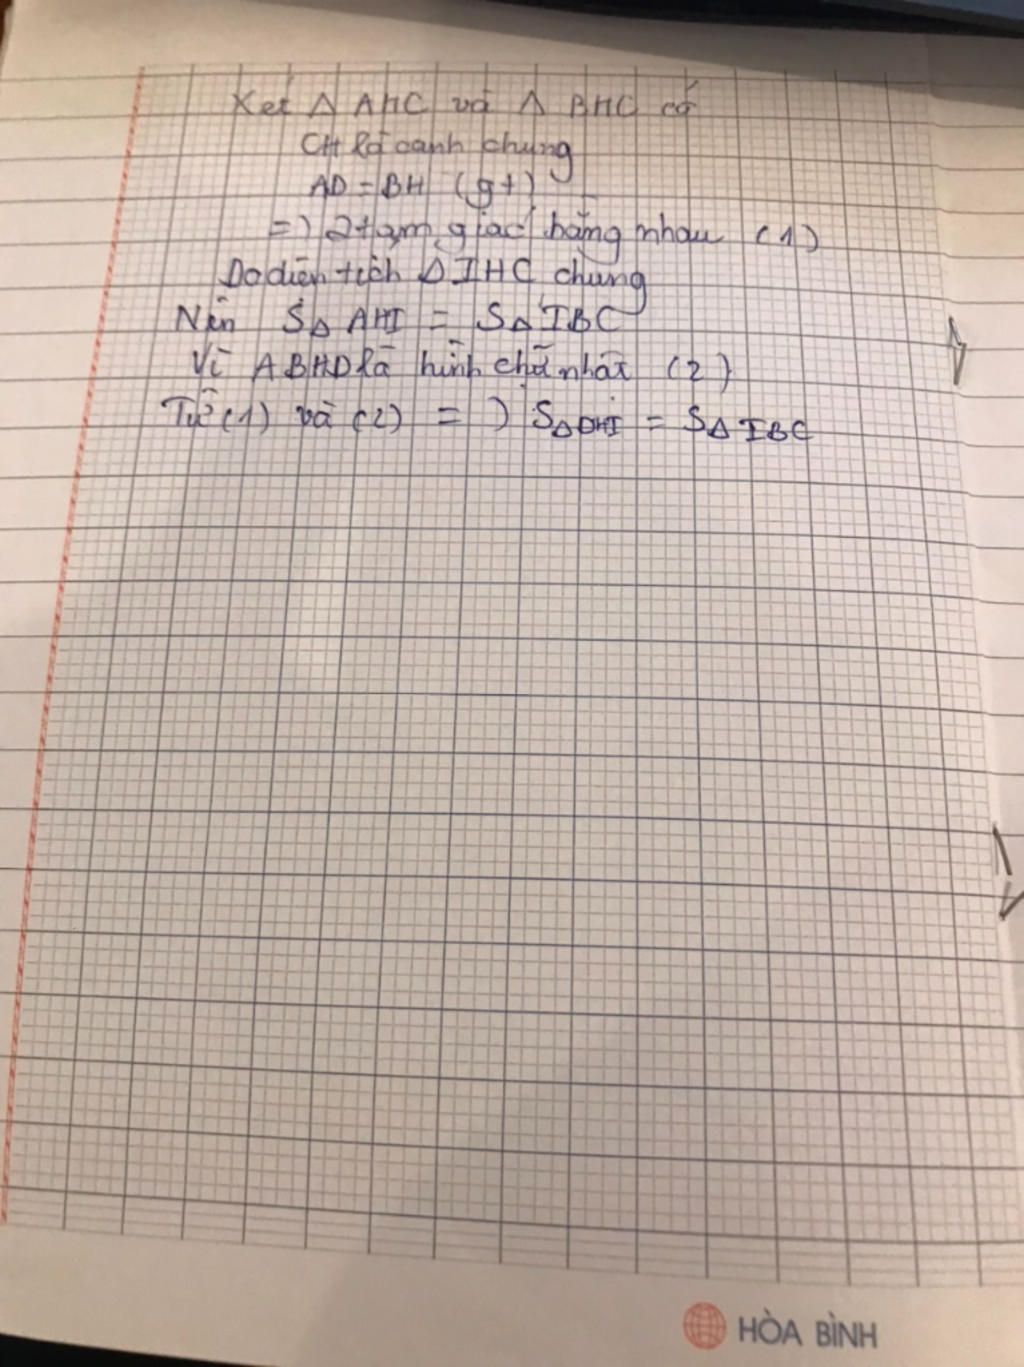 Xét Δ AHC và Δ BHC có
CH là cạnh chung
AD = BH (gt)
=) 2 tam giác bằng nhau (1)
Do diện tích Δ IHC chung
Nên SΔ AHI = SΔ IBC
Vì ABHD là hình chữ nhât (2)
Từ (1) và (2) =) SΔ DHI = SΔ IBC
HÒA BÌNH